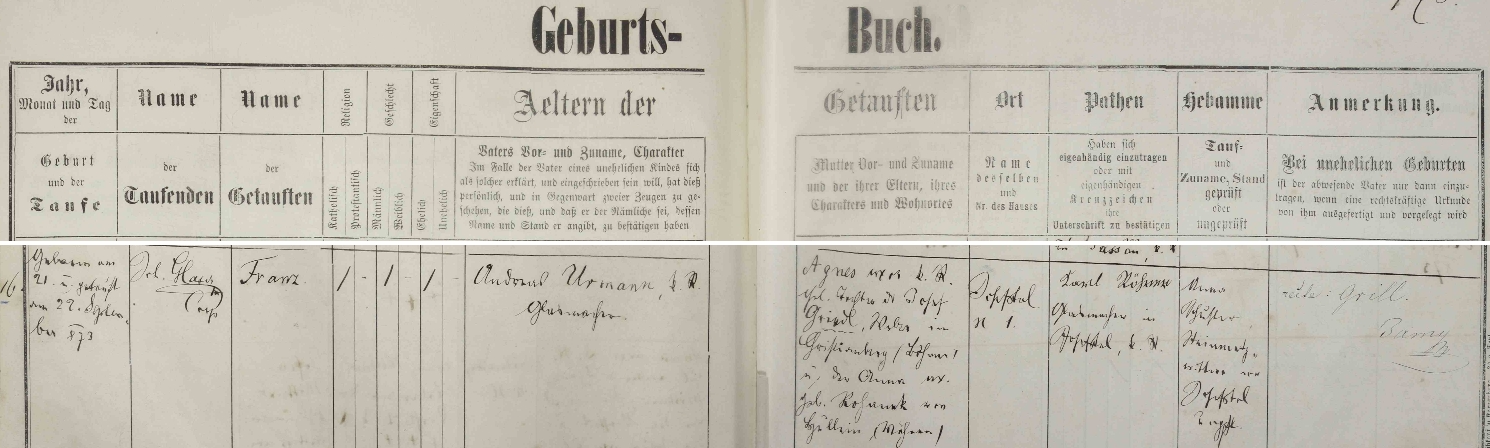 Geburts- Buch.
Jahr,
Monat und Tag
der
Geburt
und der
Taufe
Name
der
Taufenden
Name
der
Getauften
Religion
Katholisch
Protestantisch
Geschlecht
Männlich
Weiblich
Eigenschaft
Ehelich
Unehelich
Aeltern der
Vaters Vor- und Zuname, Charakter
Im Falle der Vater eines unehrlichen Kindes sich
als solcher erklärt, und eingeschrieben sein will, hat dieß
persönlich, und in Gegenwart zweier Zeugen zu ge-
schehen, die dieß, und daß er der Nämliche sei, dessen
Name und Stand er angibt, zu bestätigen haben
Getauften
Mutter Vor- und Zuname
und der ihrer Eltern, ihres
Charakters und Wohnortes
Ort
Name
desselben
und
Nr. des Hauses
Pathen
Haben sich
eigenhändig einzutragen
oder mit
eigenhändigen
Kreuzzeichen
ihre
Unterschrift zu bestätigen
Hebamme
Tauf-
und
Zuname, Stand
geprüft
oder
ungeprüft
Anmerkung.
Bei unehelichen Geburten
ist der abwesende Vater nur dann einzu-
tragen, wenn eine rechtskräftige Urkunde
von ihm ausgefertigt und vorgelegt wird
16.
Geboren am
21. u. getauft
am 22. Septem-
ber 873
Franz.
/ - / - / -
Andreas Urmann, k. K.
Glasmacher.
Agnes uxor k. K.
ehl. Tochter des Josef
Griedl, Weber in
Christianberg (Böhmen)
u. der Anna ux.
geb.
von
Hüllein (Mähren)
N 1.
in Passau, k. K.
Karl
Glasmacher in
k. K.
Anna
Schuster
Steinmetz-
wittwe von
recte: Grill.